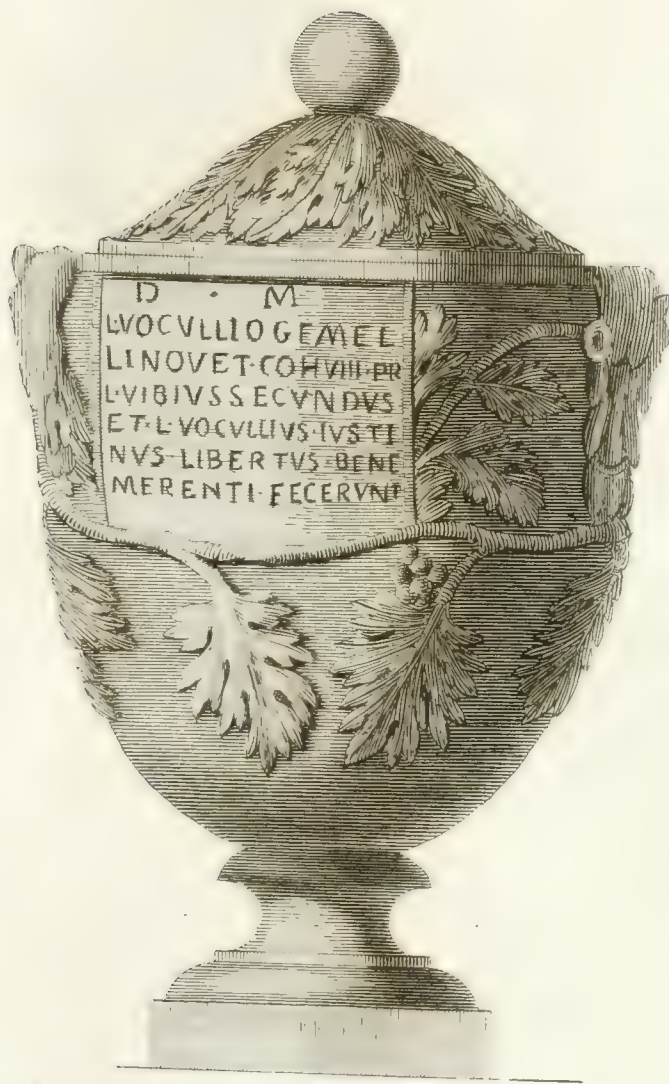 D · M
L·VOCVLLIO GEMEL
LINOVET·COHVIII·PR
L·VIBIVS SECVNDVS
ET·L·VOCVLLIVS·IVSTI
NVS·LIBERTVS·BENE
MERENTI·FECERVNT